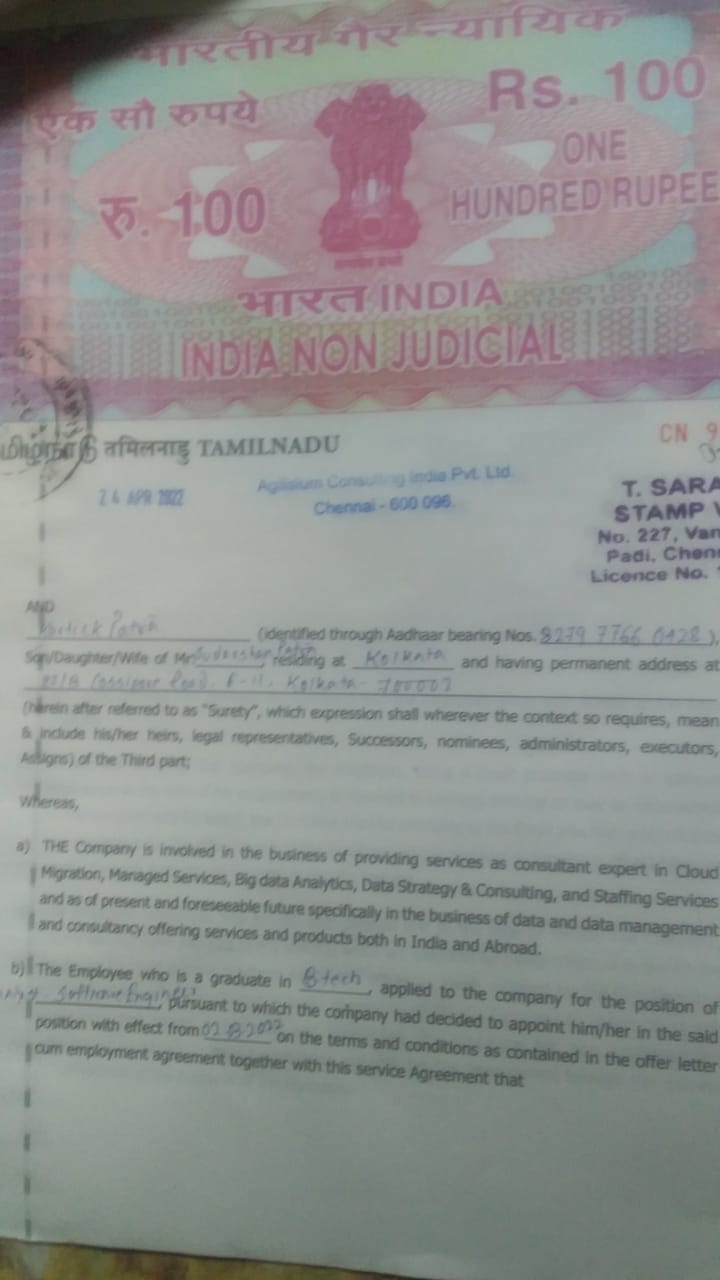 भारतीय गैर न्यायिक
एक सौ रुपये
Rs. 100
रु. 100
ONE
HUNDRED RUPEE
भारत INDIA
INDIA NON JUDICIAL
தமிழ்நாடு तमिलनाडु TAMILNADU
CN 9
24 APR 2022
Agilisium Consulting India Pvt. Ltd.
Chennai - 600 096.
T. SARA
STAMP V
No. 227, Van
Padi, Chenn
Licence No.
AND
Kartick Patra (identified through Aadhaar bearing Nos. 8279 7766 0428 ),
Son/Daughter/Wife of Mr Sudarshan Patra residing at Kolkata and having permanent address at
Cossipore Road, Kolkata - 700002
(herein after referred to as "Surety", which expression shall wherever the context so requires, mean
& include his/her heirs, legal representatives, Successors, nominees, administrators, executors,
Assigns) of the Third part;
Whereas,
a) THE Company is involved in the business of providing services as consultant expert in Cloud
Migration, Managed Services, Big data Analytics, Data Strategy & Consulting, and Staffing Services
and as of present and foreseeable future specifically in the business of data and data management
and consultancy offering services and products both in India and Abroad.
b) The Employee who is a graduate in Btech, applied to the company for the position of
Software Engineer, pursuant to which the company had decided to appoint him/her in the said
position with effect from on the terms and conditions as contained in the offer letter
cum employment agreement together with this service Agreement that